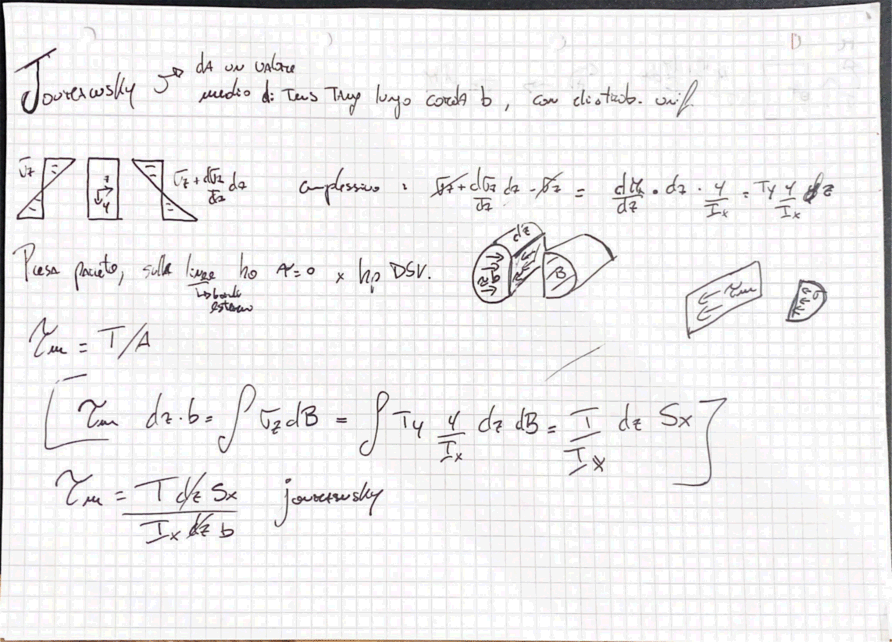 D
Jourawsky → dA un valore
medio di Tens Tang lungo corda b, con distrib. unif.
σz  z  y  σz + dσz/dz dz  complessivo : σz + dσz/dz dz - σz = dMx/dz · dz · y/Ix = Ty y/Ix dz
dz
Presa parete, sulla linea ho τ=0 x hp DSV.
↳ bordi
esterno
b  B  τm  σ
τm = T/A
[ τm dz·b = ∫ σz dB = ∫ Ty y/Ix dz dB = T/Ix dz Sx ]
τm = T dz Sx / Ix dz b  jourawsky